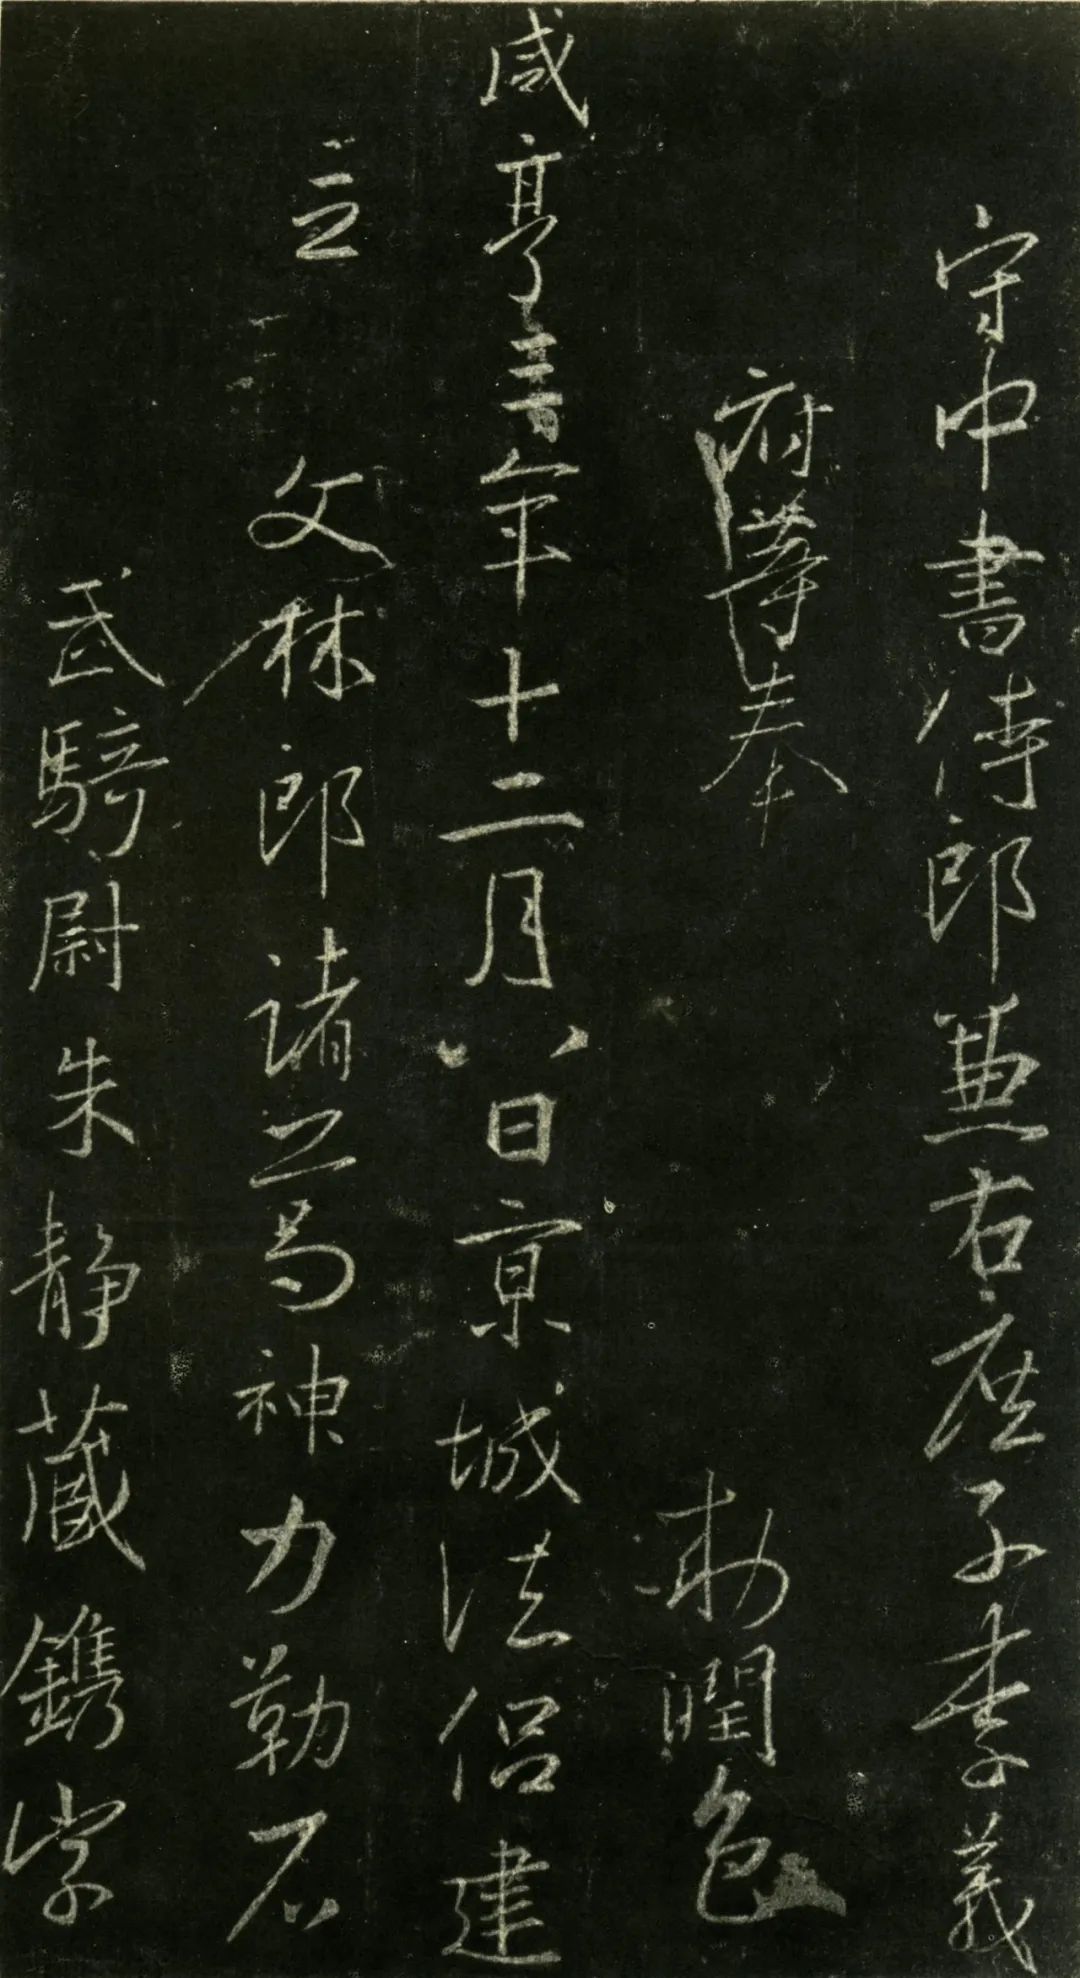 守中書侍郎兼右庶子李義
府等奉 勑潤色
咸亨三年十二月八日京城法侶建
立
文林郎諸葛神力勒石
武騎尉朱靜藏鐫字